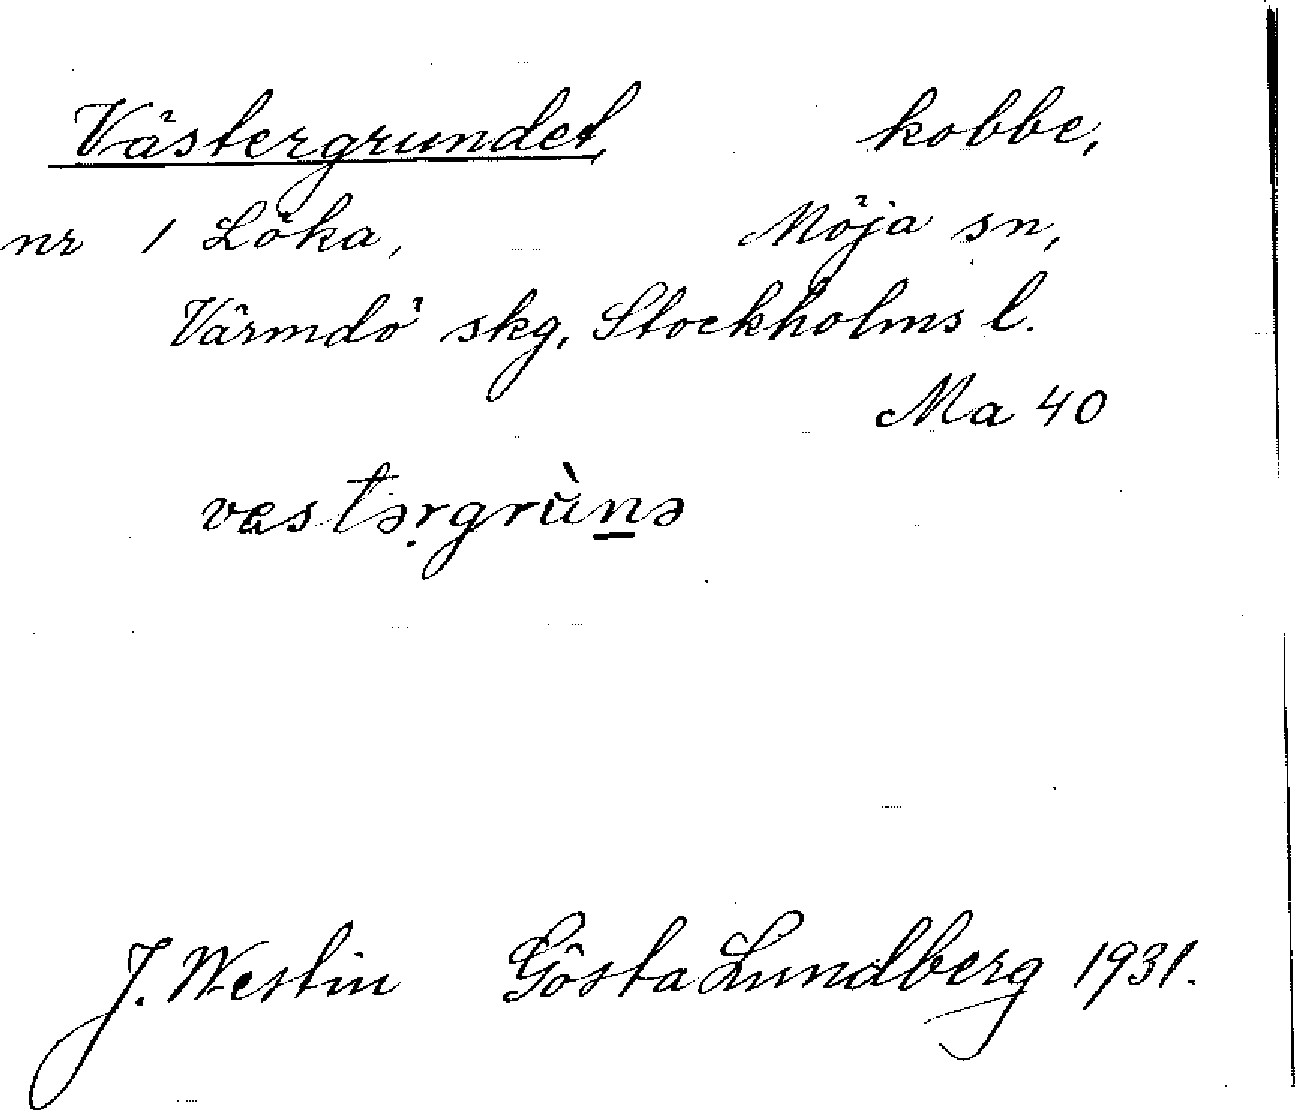 Västergrundet, kobbe,
nr 1 Löka, Möja sn,
Värmdö skg, Stockholms l.
Ma 40
vɐstərgrùnə
J. Westin Gösta Lundberg 1931.